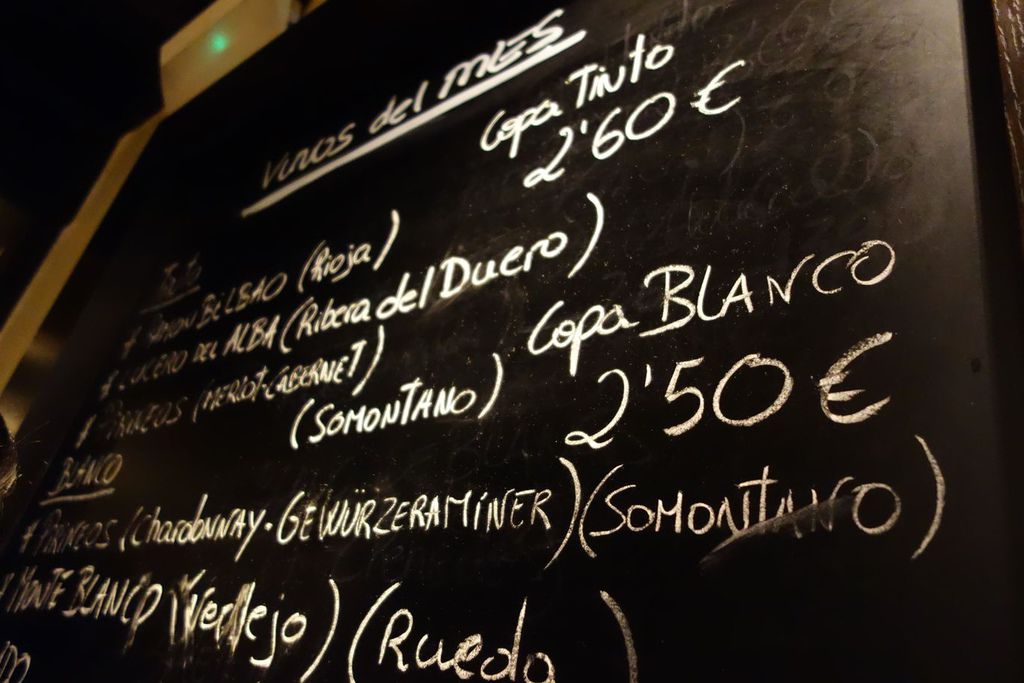 Vinos del MES
Copa Tinto
2'60 €
Tinto
* RAMON BILBAO (Rioja)
* LUCERO DEL ALBA (Ribera del Duero)
* PIRINEOS (MERLOT-CABERNET)
(SOMONTANO)
Copa BLANCO
2'50 €
BLANCO
* PIRINEOS (Chardonnay-GEWÜRZERAMINER) (SOMONTANO)
* MONTE BLANCO (Verdejo) (Rueda)